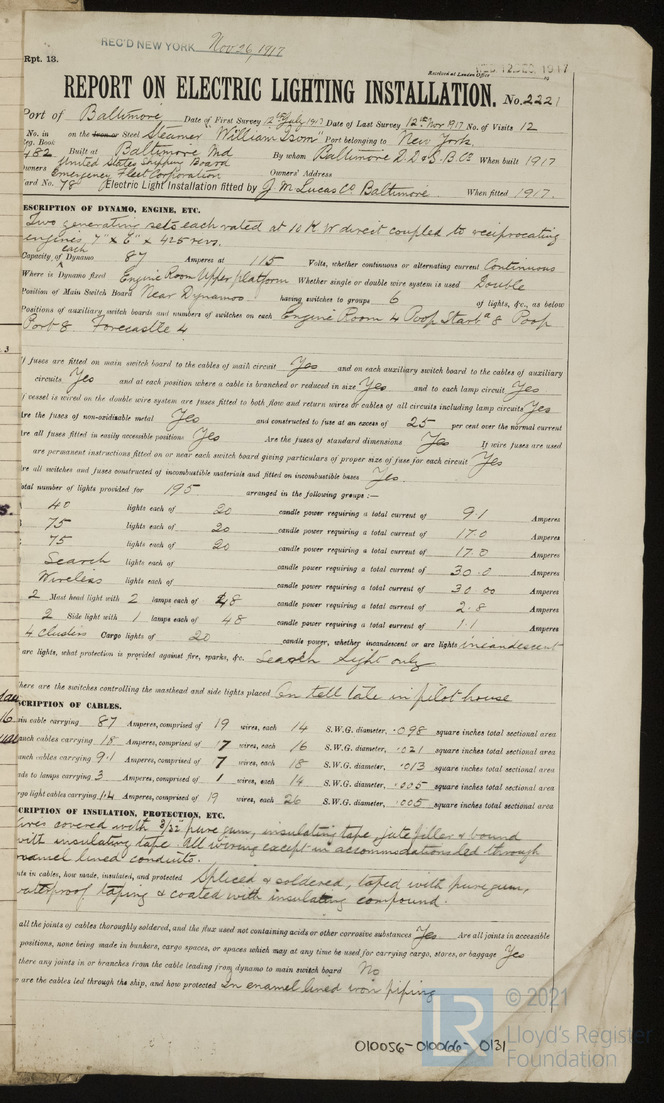 REC'D NEW YORK Nov 26, 1917
Rpt. 13.
Received at London Office
12 DEC. 1917
REPORT ON ELECTRIC LIGHTING INSTALLATION. No. 2221
Port of Baltimore Date of First Survey 12th July 1917 Date of Last Survey 12th Nov 1917 No. of Visits 12
No. in on the Iron or Steel Steamer "William Isom" Port belonging to New York
Reg. Book
482 Built at Baltimore Md By whom Baltimore D.D. & S.B. Co When built 1917
United States Shipping Board
Owners Emergency Fleet Corporation Owners' Address
Yard No. 78 Electric Light Installation fitted by J M Lucas Co Baltimore When fitted 1917.
ESCRIPTION OF DYNAMO, ENGINE, ETC.
Two generating sets each rated at 10 K W direct coupled to reciprocating
engines, 7" x 6" x 425 revs.
Capacity of each Dynamo 87 Amperes at 115 Volts, whether continuous or alternating current Continuous
Where is Dynamo fixed Engine Room Upper platform Whether single or double wire system is used Double
Position of Main Switch Board Near Dynamos having switches to groups 6 of lights, &c., as below
Positions of auxiliary switch boards and numbers of switches on each Engine Room 4 Poop Starbd 8 Poop
Port 8 Forecastle 4
If fuses are fitted on main switch board to the cables of main circuit Yes and on each auxiliary switch board to the cables of auxiliary
circuits Yes and at each position where a cable is branched or reduced in size Yes and to each lamp circuit Yes
If vessel is wired on the double wire system are fuses fitted to both flow and return wires or cables of all circuits including lamp circuits Yes
Are the fuses of non-oxidizable metal Yes and constructed to fuse at an excess of 25 per cent over the normal current
Are all fuses fitted in easily accessible positions Yes Are the fuses of standard dimensions Yes If wire fuses are used
are permanent instructions fitted on or near each switch board giving particulars of proper size of fuse for each circuit Yes
Are all switches and fuses constructed of incombustible materials and fitted on incombustible bases Yes.
otal number of lights provided for 195 arranged in the following groups :—
40 lights each of 20 candle power requiring a total current of 9.1 Amperes
75 lights each of 20 candle power requiring a total current of 17.0 Amperes
75 lights each of 20 candle power requiring a total current of 17.0 Amperes
Search lights each of candle power requiring a total current of 30.0 Amperes
Wireless lights each of candle power requiring a total current of 30.00 Amperes
2 Mast head light with 2 lamps each of 48 candle power requiring a total current of 2.8 Amperes
2 Side light with 1 lamps each of 48 candle power requiring a total current of 1.1 Amperes
4 Clusters Cargo lights of 20 candle power, whether incandescent or arc lights incandescent
arc lights, what protection is provided against fire, sparks, &c. Search light only
here are the switches controlling the masthead and side lights placed On tell tale in pilot house
SCRIPTION OF CABLES.
ain cable carrying 87 Amperes, comprised of 19 wires, each 14 S.W.G. diameter, .098 square inches total sectional area
anch cables carrying 18 Amperes, comprised of 7 wires, each 16 S.W.G. diameter, .021 square inches total sectional area
anch cables carrying 9.1 Amperes, comprised of 7 wires, each 18 S.W.G. diameter, .013 square inches total sectional area
ads to lamps carrying 3 Amperes, comprised of 1 wires, each 14 S.W.G. diameter, .005 square inches total sectional area
rgo light cables carrying 1.4 Amperes, comprised of 19 wires, each 26 S.W.G. diameter, .005 square inches total sectional area
CRIPTION OF INSULATION, PROTECTION, ETC.
ires covered with 3/32" pure gum, insulating tape, jute filler & bound
with insulating tape. All wiring except in accommodations led through
enamel lined conduits.
nts in cables, how made, insulated, and protected Spliced & soldered, taped with pure gum,
waterproof taping & coated with insulating compound.
all the joints of cables thoroughly soldered, and the flux used not containing acids or other corrosive substances Yes Are all joints in accessible
positions, none being made in bunkers, cargo spaces, or spaces which may at any time be used for carrying cargo, stores, or baggage Yes
there any joints in or branches from the cable leading from dynamo to main switch board No
are the cables led through the ship, and how protected In enamel lined iron piping
© 2021
LR Lloyd's Register
Foundation
010056-010066-0131